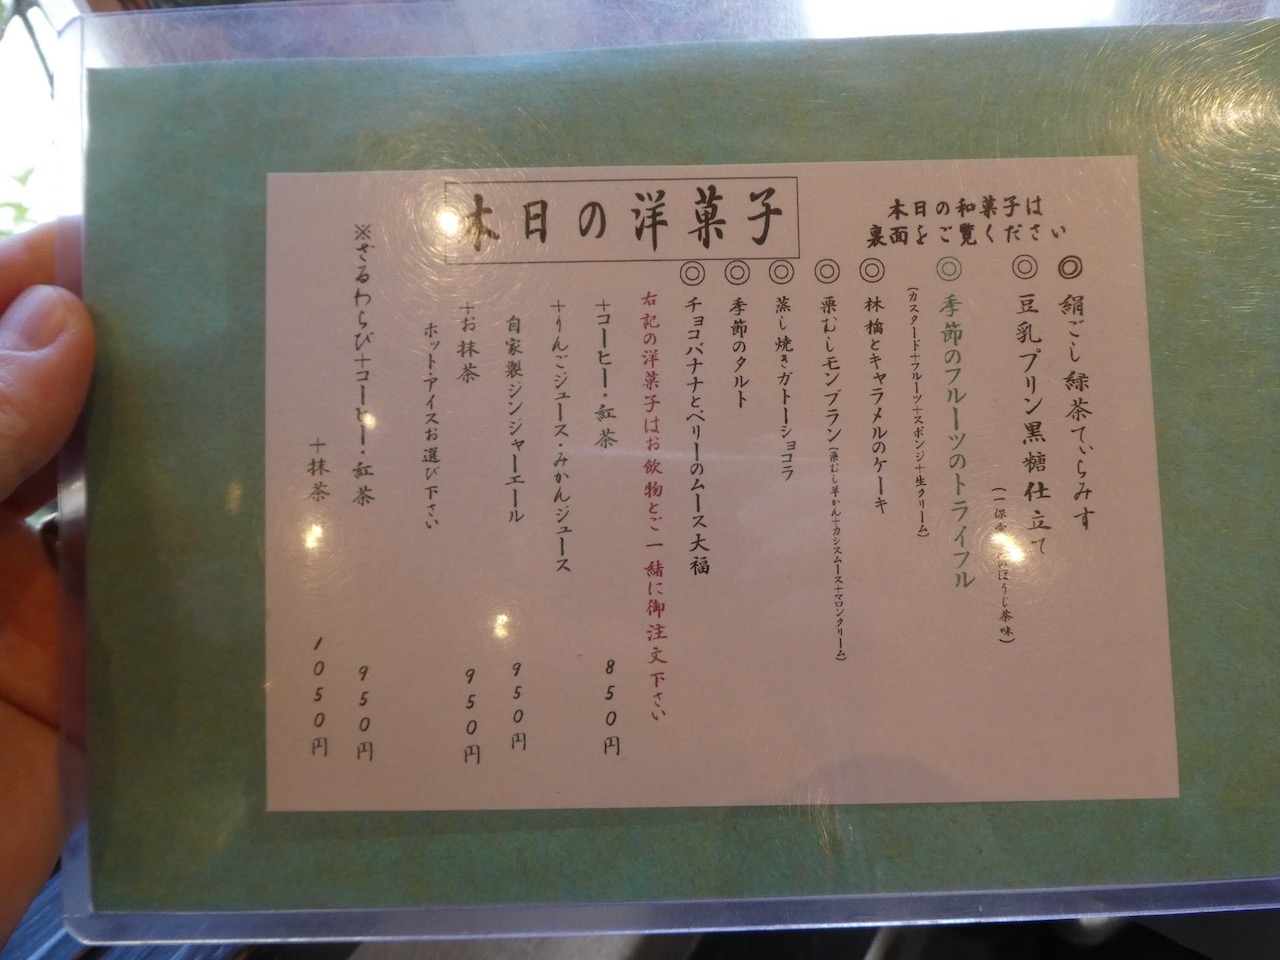 本日の洋菓子
本日の和菓子は
裏面をご覧ください
◎ 絹ごし緑茶てぃらみす
◎ 豆乳プリン黒糖仕立て
(一保堂 のほうじ茶味)
◎ 季節のフルーツのトライフル
(カスタード+フルーツ+スポンジ+生クリーム)
◎ 林檎とキャラメルのケーキ
◎ 栗むしモンブラン(栗むし羊かん+カシスムース+マロンクリーム)
◎ 蒸し焼きガトーショコラ
◎ 季節のタルト
◎ チョコバナナとベリーのムース大福
右記の洋菓子はお飲物とご一緒に御注文下さい
+コーヒー・紅茶 850円
+りんごジュース・みかんジュース
自家製ジンジャーエール 950円
+お抹茶 950円
ホット・アイスお選び下さい
※ざるわらび+コーヒー・紅茶 950円
+抹茶 1050円